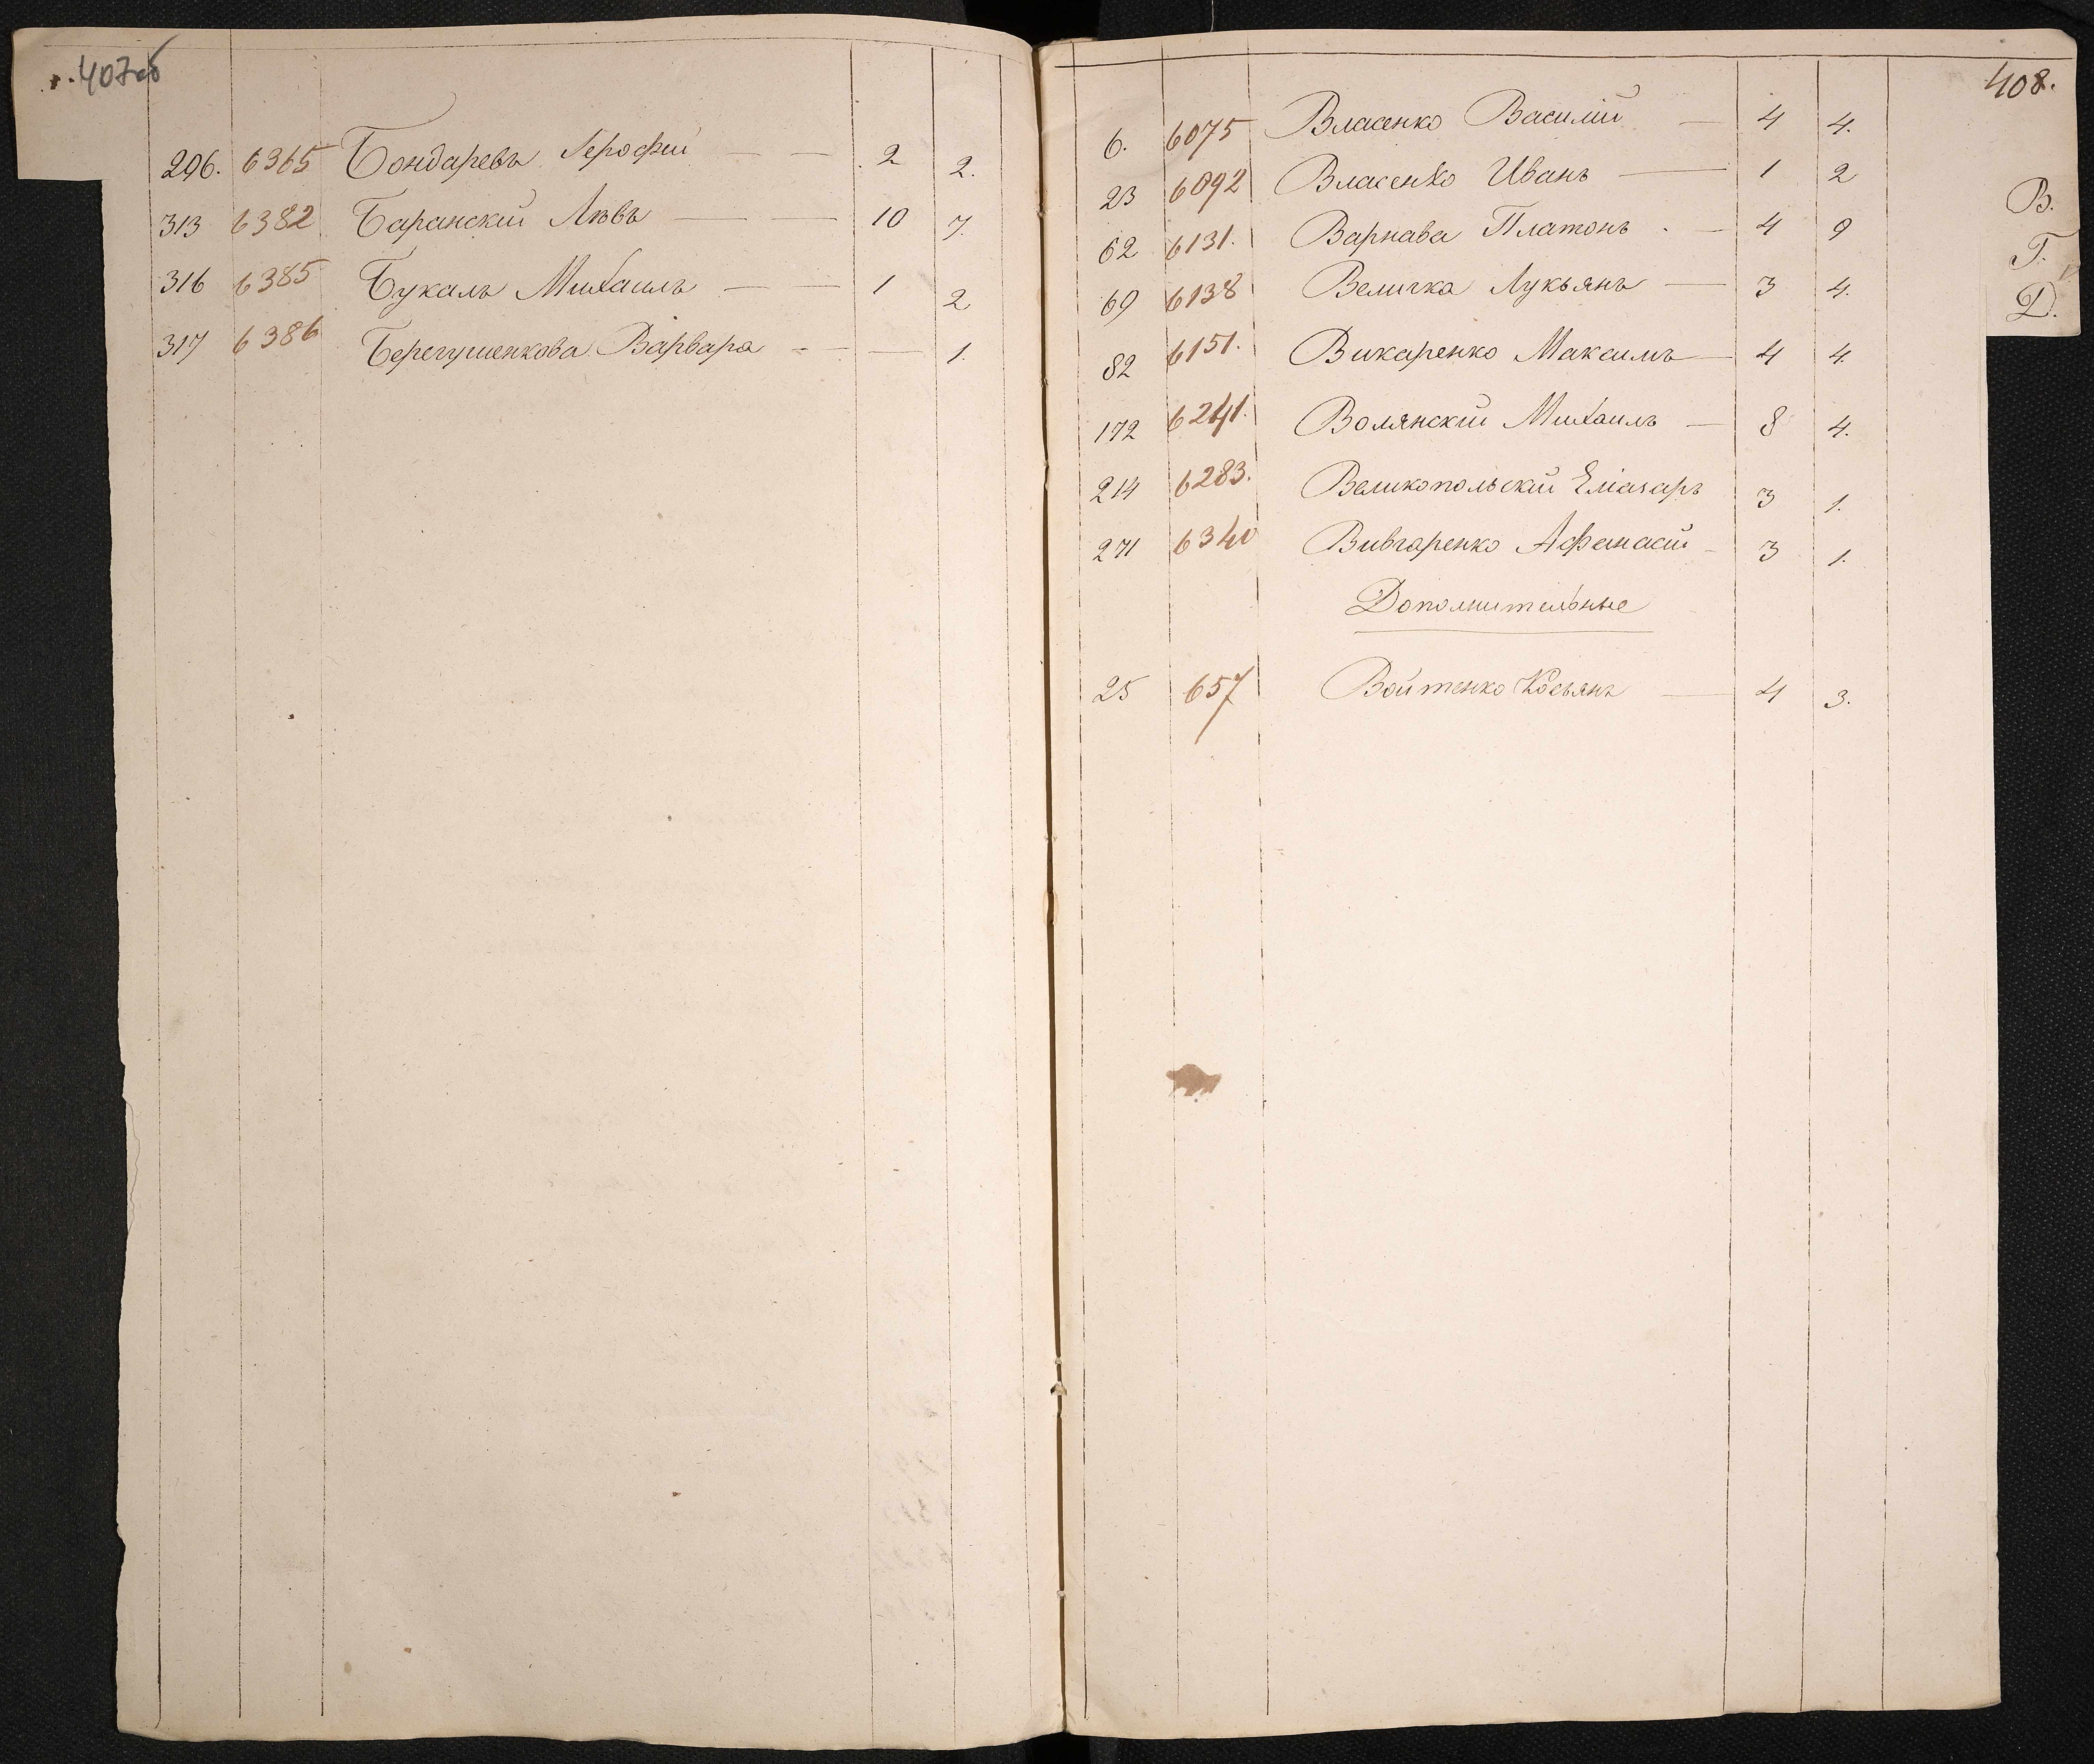 407об
296. 6365 Бондаревъ Ерофей — — 2 2.
313 6382 Баранскій Левъ — — 10 7.
316 6385 Букалъ Михаилъ — — 1 2
317 6386 Варвара — — 1.
408.
6. 6075 Власенко Василій — 4 4.
23 6092 Власенко Иванъ — 1 2
62 6131. Варнава Платонъ — 4 9
69 6138 Величка Лукьянъ — 3 4.
82 6151. Викаренко Максимъ — 4 4.
172 6241. Волянскій Михаилъ — 8 4.
214 6283. Великопольскій Еліазаръ 3 1.
271 6340 Вивчаренко Афанасій — 3 1.
Дополнительные
25 657 Войтенко Косьянъ — 4 3.
В.
Г.
Д.